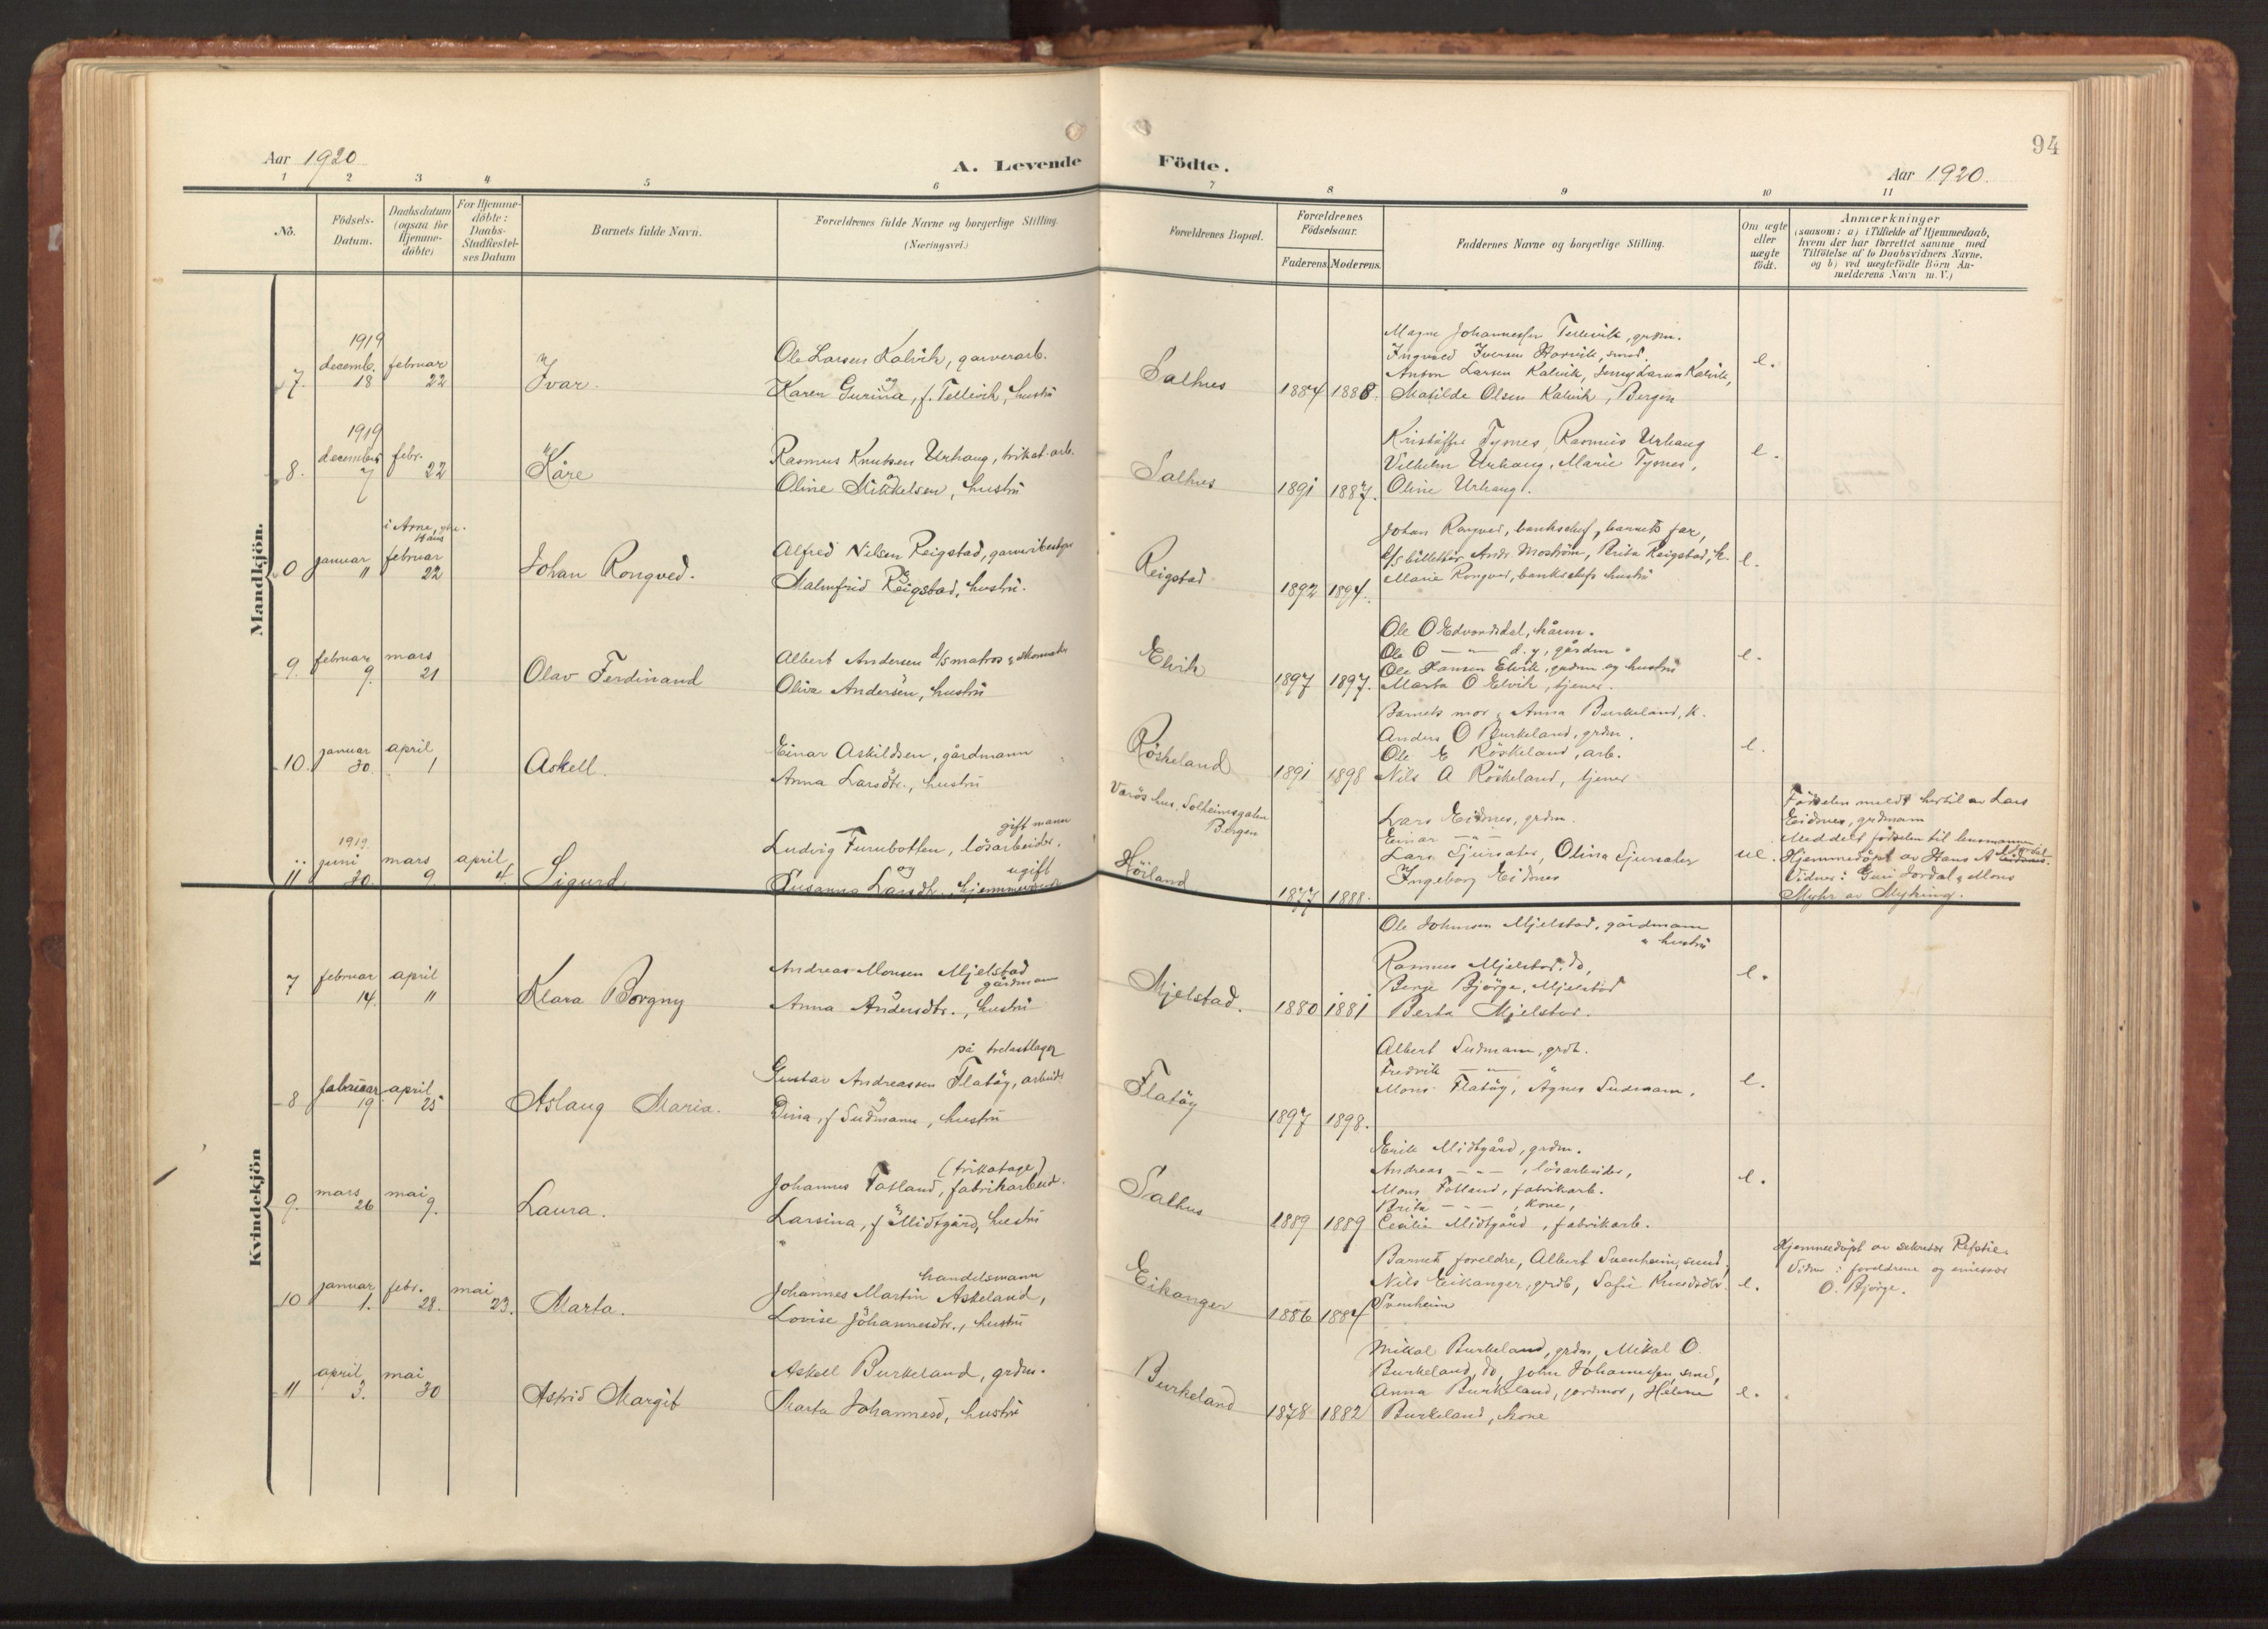 94
Aar 1920
A. Levende
Födte.
Aar 1920.
1 2 3 4 5 6 7 8 9 10 11
No.
Födsels-
Datum.
Daabsdatum
(ogsaa for
Hjemme-
döbte)
For Hjemme-
döbte:
Daabs-
Stadfæstel-
ses Datum
Barnets fulde Navn.
Forældrenes fulde Navne og borgerlige Stilling.
(Næringsvei.)
Forældrenes Bopæl.
Forældrenes
Födselsaar.
Faderens.
Moderens.
Faddernes Navne og borgerlige Stilling.
Om ægte
eller
uægte
födt.
Anmærkninger
(saasom: a) i Tilfælde af Hjemmedaab,
hvem der har forrettet samme med
Tilföielse af to Daabsvidners Navne,
og b) ved uægtefödte Börn An-
melderens Navn m.V.)
Mandkjön.
1919
7. decemb. 18 februar 22
Ivar.
Ole Larsen Kalvik, garverarb.
og
Karen Gurina, f. Tellevik, hustru
Salhus
1884 1888.
Magne Johannessen Tellevik, grdm.
Ingvald Iversen Horvik, smed.
Anton Larsen Kalvik, Jenny Larsen Kalvik,
Matilde Olsen Kalvik, Bergen
e.
1919
8. december 7 febr. 22
Kåre
Rasmus Knutsen Urhaug, trikot.arb.
og
Oline Mikkelsen, hustru
Salhus
1891 1887.
Kristoffer Tysnes, Rasmus Urhaug
Vilhelm Urhaug, Marie Tysnes,
Oline Urhaug.
e.
i Arna,
Haus
0 januar 11 februar 22
Johan Rongved.
Alfred Nilsen Reigstad, garveribestyr
og
Malmfrid Reigstad, hustru.
Reigstad
1892 1894.
Johan Rongved, bankchef, barnets far,
d/s billettör Andr. Moström, Brita Reigstad, k.
Marie Rongved, bankchefs hustru
e.
9. februar 9. mars 21
Olav Ferdinand
Albert Andersen d/s matros & skomaker
Oliva Andersen, hustru
Elvik
1897 1897.
Ole O Edvardsdal, kårm.
Ole O — " — d.y, gårdm.
Ole Hansen Elvik, gardm og hustru
Marta O Elvik, tjener.
e.
10. januar 30. april 1
Askell.
Einar Askildsen, gårdmann
Anna Larsdtr., hustru
Röskeland
1891 1898
Barnets mor, Anna Burkeland, k.
Anders O Burkeland, grdm.
Ole E Röskeland, arb.
Nils A Röskeland, tjener
e.
1919.
11 juni 20. mars 9. april 4.
Sigurd
gift mann
Ludvig Furubotten, lösarbeider.
og ugift
Susanna Larsdtr., hjemmeværende
Solheimsgaten
Bergen
Höiland
1877 1888.
Lars Eidnes, grdm.
Einar — " —
Lars Sjursæter, Olina Sjursæter
Ingeborg Eidnes
ue.
Födselen meldt hertil av Lars
Eidnes, grdmann
Meddelt födselen til lensmannen
Hjemmedöpt av Hans A Jordal.
Vidner: Guri Jordal & Mons
Myhr av Myking.
Kvindekjön
7 februar 14. april 11
Klara Borgny
Andreas Monsen Mjelstad
gårdmann
og
Anna Andersdtr., hustru
Mjelstad.
1880 1881
Ole Johnsen Mjelstad, gårdmann
" hustru
Rasmus Mjelstad, do,
Berge Bjørge, Mjelstad
Berta Mjelstad.
e.
8 februar 19 april 25
Aslaug Maria.
på trelastlager
Gustav Andreassen Flatöy, arbeider
og
Dina, f Sudmann, hustru
Flatöy
1897 1898.
Albert Sudmann, grdbr.
Fredrik — " — "
Mons Flatöy, Agnes Sudmann.
e.
9. mars 26 mai 9.
Laura.
(trikotage)
Johannes Fotland, fabrikarbeid.
og
Larsina, f Midtgård, hustru
Salhus
1889 1889
Erik Midtgård, grdm.
Andreas — " — , lösarbeider,
Mons Fotland, fabrikarb.
Brita — " — , kone,
Cecilie Midtgård, fabrikarb.
e.
10 januar 1. febr. 28. mai 23.
Marta.
handelsmann
Johannes Martin Askeland,
Lovise Johannesdtr., hustru
Eikanger
1886 1884
Barnets foreldre, Albert Svenheim, smed,
Nils Eikanger, grdb, Sofie Knudsdtr.
Svenheim
e.
Hjemmedöpt av sekretær Refstie.
Vidner: foreldrene og emissær
O. Bjørge.
11 april 3. mai 30
Astrid Margit
Askell Burkeland, grdm.
Marta Johannesd, hustru
Burkeland
1878 1882
Mikal Burkeland, grdm, Mikal O.
Burkeland, do, John Johannesen, smed,
Anna Burkeland, jordmor, Helene
Burkeland, kone
e.